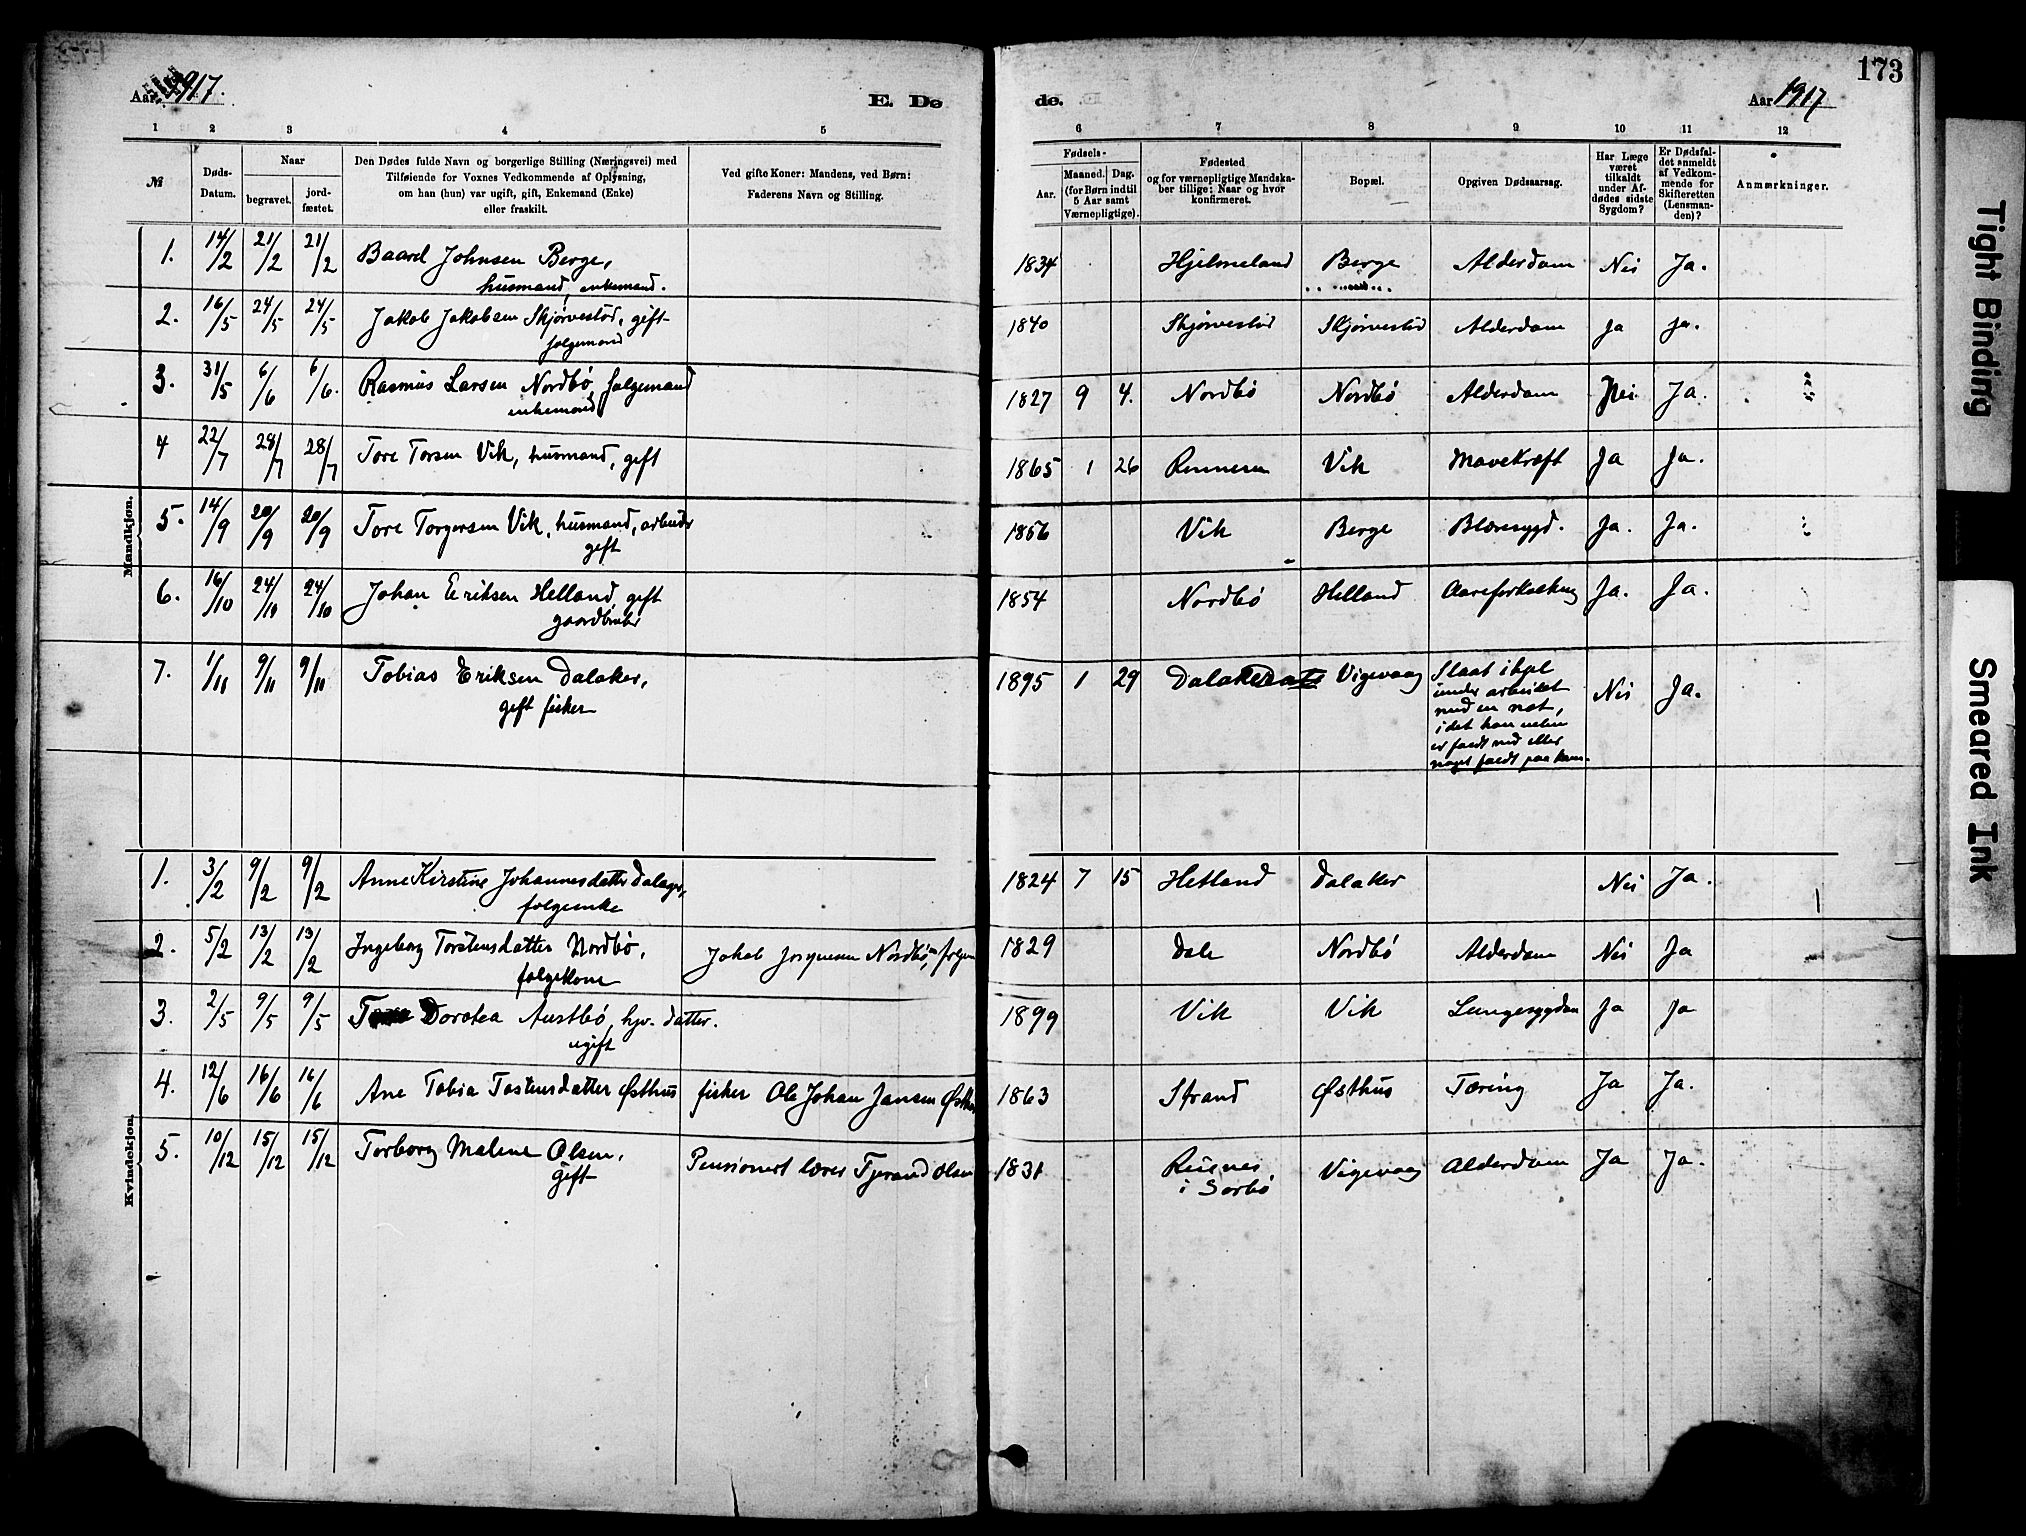 173
Aar 1917.
E. Dø
de.
Aar 1917
1 2 3 4 5 6 7 8 9 10 11 12
№
Døds-
Datum.
Naar
begravet.
jord-
fæstet.
Den Dødes fulde Navn og borgerlige Stilling (Næringsvei) med
Tilføiende for Voxnes Vedkommende af Oplysning,
om han (hun) var ugift, gift, Enkemand (Enke)
eller fraskilt.
Ved gifte Koner: Mandens, ved Børn:
Faderens Navn og Stilling.
Fødsels-
Aar.
Maaned. Dag.
(for Børn indtil
5 Aar samt
Værnepligtige).
Fødested
og for værnepligtige Mandska-
ber tillige: Naar og hvor
konfirmeret.
Bopæl.
Opgiven Dødsaarsag.
Har Læge
været
tilkaldt
under Af-
dødes sidste
Sygdom?
Er Dødsfal-
det anmeldt
af Vedkom-
mende for
Skifteretten
(Lensman-
den)?
Anmærkninger.
Mandkjøn.
1. 14/2 21/2 21/2 Baard Johnsen Berge, 1834 Hjelmeland Berge Alderdom Nei Ja.
husmand, enkemand.
2. 16/5 24/5 24/5 Jakob Jakobsen Skjørvestød, gift 1840 Skjørvestød Skjørvestød Alderdom Ja Ja.
folgemand
3. 31/5 6/6 6/6. Rasmus Larsen Nordbø, folgemand 1827 9 4. Nordbø Nordbø Alderdom Nei Ja.
enkemand
4 22/7 28/7 28/7 Tore Torsen Vik, husmand, gift 1865 1 26 Rennesø Vik Mavekræft Ja Ja.
5. 14/9 20/9 20/9 Tore Torgersen Vik, husmand, arbeider 1856 Vik Berge Blæresygd. Ja. Ja.
gift
6. 16/10 24/10 24/10 Johan Eriksen Helland, gift 1854 Nordbø Helland Aareforkalkning Ja. Ja.
gaardbruker
7. 1/11 9/11 9/11 Tobias Eriksen Dalaker, 1895 1 29 Dalaker Vigevaag Slaat ihjel
gift fisker
under arbeidet
med en not,
idet han enten
er faldt ned eller
noget faldt paa ham.
Nei Ja.
Kvindekjøn.
1. 3/2 9/2 9/2 Anne Kirstine Johannesdatter Dalager, 1824 7 15 Hetland Dalaker Nei Ja.
folgeenke
2. 5/2 13/2 13/2 Ingeborg Torstensdatter Nordbø, Jakob Nordbø, 1829 Dale Nordbø Alderdom Nei Ja
folgekone
3. 2/5 9/5 9/5 Dorotea Austbø, hjv. datter. 1899 Vik Vik Lungesygdom Ja Ja
ugift
4. 12/6 16/6 16/6 Ane Tobia Tostensdatter Østhus fisker Ole Johan Jansen Østhus 1863 Strand Østhus Tæring Ja Ja.
5. 10/12 15/12 15/12 Torborg Malene Olsen, Pensionert lærer Tjerand Olsen 1831 Reienes Vigevaag Alderdom Ja Ja.
gift
i Sørbø
Tight Binding
Smeared Ink